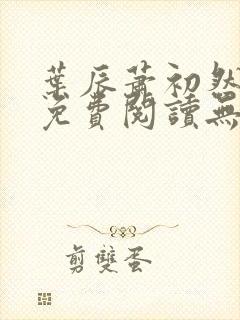 葉辰蕭初然
免費閱讀無
剪雙蛋